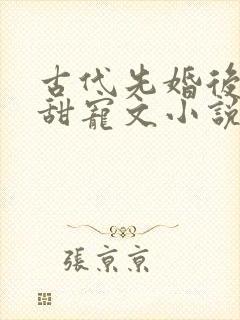 古代先婚後
甜寵文小說
張京京